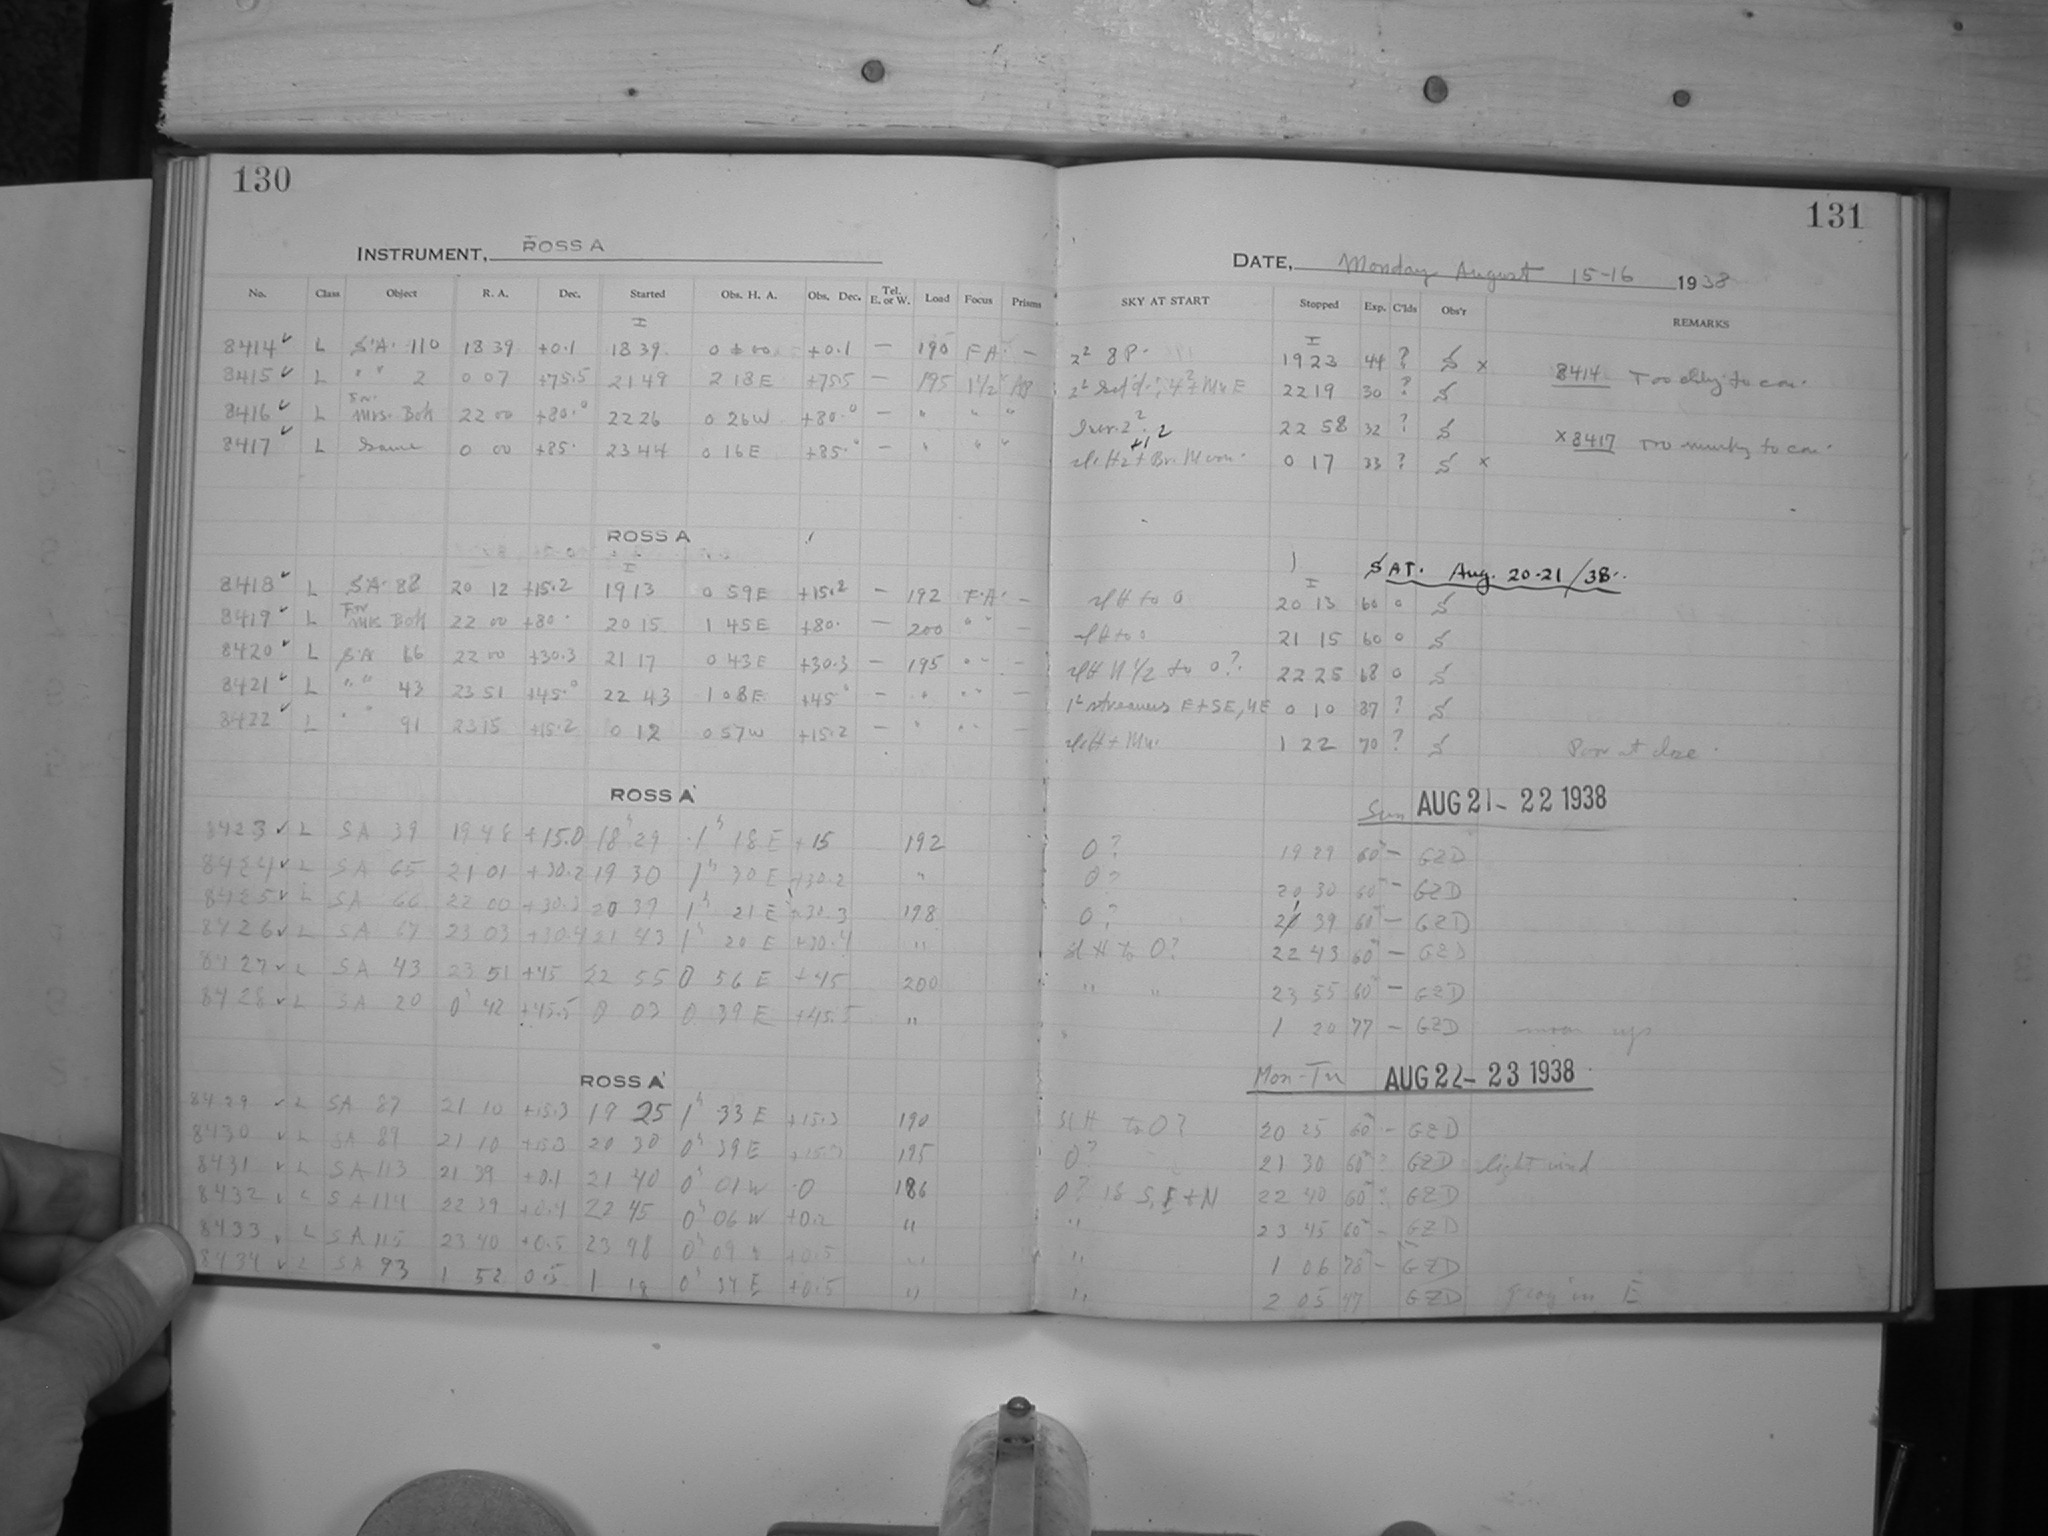 130
INSTRUMENT, ROSS A
No. Class Object R. A. Dec. Started Obs. H. A. Obs. Dec. Tel. E. or W. Load Focus Prisms
8414 ✓ L S.A. 110 18 39 +0.1 18 39 0 00 +0.1 — 190 F A. —
8415 ✓ L " " 2 0 07 +75.5 21 49 2 18 E +75.5 — 195 1 1/2
8416 ✓ L For Mrs. Bok 22 00 +80.° 22 26 0 26 W +80.° — " " "
8417 ✓ L Same 0 00 +85. 23 44 0 16 E +85.° — " " "
ROSS A
8418 ✓ L S.A. 88 20 12 +15.2 19 13 0 59 E +15.2 — 192 F.A. —
8419 ✓ L For Mrs Bok 22 00 +80. 20 15 1 45 E +80. — 200 " " —
8420 ✓ L S.A 66 22 00 +30.3 21 17 0 43 E +30.3 — 195 " " —
8421 ✓ L " " 43 23 51 +45.° 22 43 1 08 E +45° — " " " —
8422 ✓ L " " 91 23 15 +15.2 0 12 0 57 W +15.2 — " " " —
ROSS A
8423 ✓ L SA 39 19 48 +15.0 18h 29 1h 18 E +15 192
8424 ✓ L SA 65 21 01 +30.2 19 30 1h 30 E +30.2 "
8425 ✓ L SA 66 22 00 +30.3 20 39 1h 21 E +30.3 198
8426 ✓ L SA 67 23 03 +30.4 21 43 1h 20 E +30.4 "
8427 ✓ L SA 43 23 51 +45 22 55 0 56 E +45 200
8428 ✓ L SA 20 0h 42 +45.5 0 03 0 39 E +45.5 "
ROSS A
8429 ✓ L SA 87 21 10 +15.3 19 25 1h 33 E +15.3 190
8430 ✓ L SA 89 21 10 +15.3 20 30 0h 39 E +15.3 195
8431 ✓ L SA 113 21 39 +0.1 21 40 0h 01 W 0 186
8432 ✓ L SA 114 22 39 +0.4 22 45 0h 06 W +0.2 "
8433 ✓ L SA 115 23 40 +0.5 23 48 0h 09 +0.5 "
8434 ✓ L SA 93 1 52 0.5 1 18 0h 34 E +0.5 "
131
DATE, Monday August 15-16 1938
SKY AT START Stopped Exp. C'lds Obs'r REMARKS
2² 8 P. 19 23 44 ? S x 8414 Too to
22 19 30 ? S
22 58 32 ? S
+ Br. Moon. 0 17 33 ? S x x 8417 Too murky to
SAT. Aug. 20-21/38.
sl H to 0 20 13 60 0 S
sl H to 0 21 15 60 0 S
sl H 1/2 to 0?. 22 25 68 0 S
1² streamers E + SE, NE 0 10 87 ? S
sl H + Mn. 1 22 70 ? S Poor at close.
Sun AUG 21-22 1938
0? 19 29 60m — GZD
0? 20 30 60m — GZD
0? 21 39 60m — GZD
sl H to 0? 22 43 60m — GZD
" " 23 55 60m — GZD
" 1 20 77 — GZD moon up
Mon-Tu AUG 22-23 1938
sl H to 0? 20 25 60m — GZD
0? 21 30 60m ? GZD light wind
0? 18 S, E + N 22 40 60m ? GZD
" 23 45 60m — GZD
" 1 06 78 — GZD
" 2 05 47 GZD in E